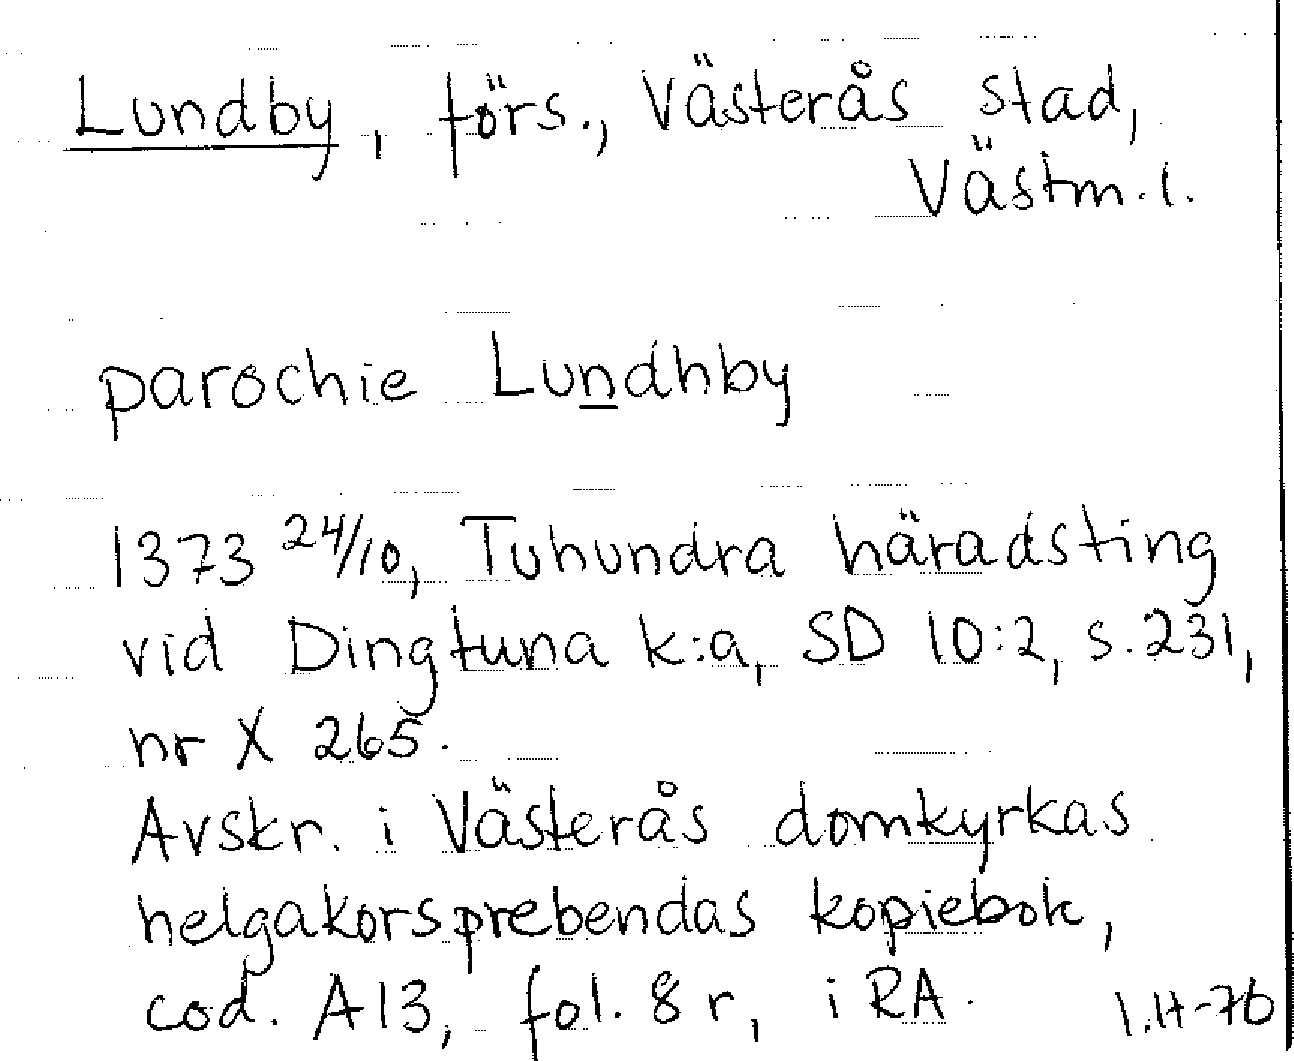 Lundby, förs., Västerås stad,
Västm. l.
parochie Lundhby
1373 24/10, Tuhundra häradsting
vid Dingtuna k:a, SD 10:2, s. 231,
nr X 265.
Avskr. i Västerås domkyrkas
helgakorsprebendas kopiebok,
cod. A13, fol. 8 r, i RA.